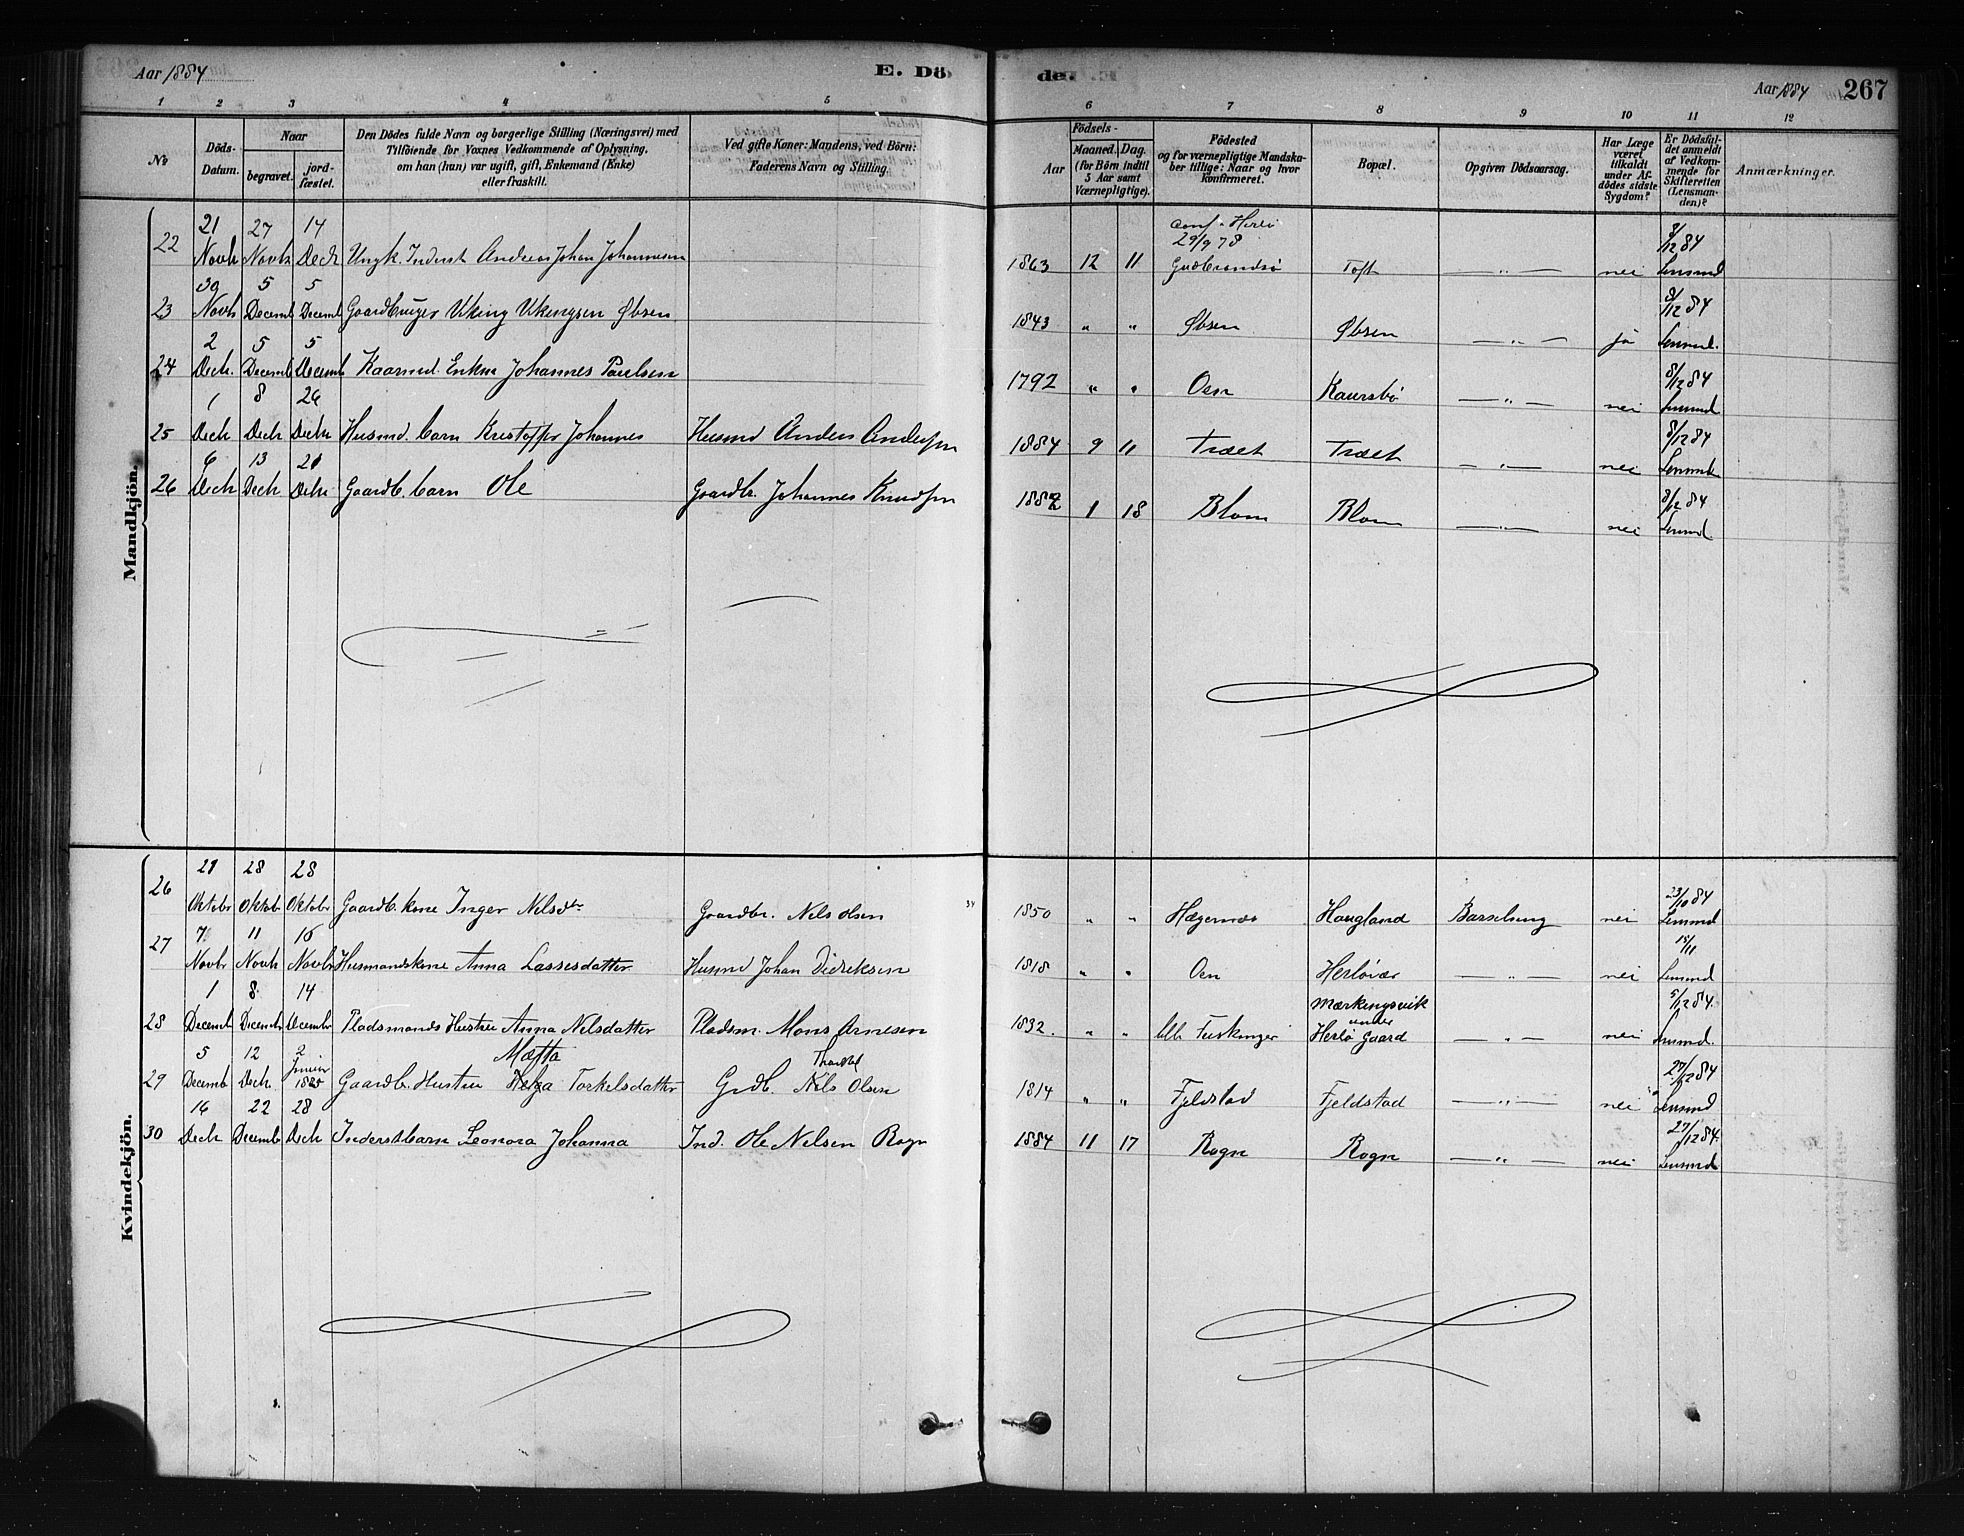 Aar 1884
E. Dö
de
Aar 1884
267
1 2 3 4 5 6 7 8 9 10 11 12
No
Döds-Datum.
Naar
begravet.
jord-fæstet.
Den Dödes fulde Navn og borgerlige Stilling (Næringsvei) med
Tilföiende for Voxnes Vedkommende af Oplysning,
om han (hun) var ugift, gift, Enkemand (Enke)
eller fraskilt.
Ved gifte Koner: Mandens, ved Börn:
Faderens Navn og Stilling.
Födsels-
Aar
Maaned. Dag.
(for Börn indtil
5 Aar samt
Værnepligtige).
Födested
og for værnepligtige Mandska-
ber tillige: Naar og hvor
konfirmeret.
Bopæl.
Opgiven Dödsaarsag.
Har Læge
været
tilkaldt
under Af-
dödes sidste
Sygdom?
Er Dödsfal-
det anmeldt
af Vedkom-
mende for
Skifteretten
(Lensman-
den)?
Anmærkninger.
Mandkjön.
22 21 Novb 27 Novb 14 Dech Ungk. Inderst Andreas Johan Johannesen 1863 12 11 Conf. Herlö 29/9 78 Gudbrandsö Toft — „ — nei 8/12 84 Lensmd
23 30 Novb 5 Decemb 5 Decemb Gaardbruger Viking Vikingsen Øbsen 1843 „ „ Øbsen Øbsen — „ — ja 8/12 84 Lensmd.
24 2 Dech. 5 Decemb 5 Decemb Kaarmd. Enkm Johannes Paulsen 1792 „ „ Oen Kaursbö — „ — nei 8/12 84 Lensmd
25 1 Dech 8 Dech 26 Dechr Husmd. barn Kristoffer Johannes Husmd Anders Andersen 1884 9 11 Træet Træet — „ — nei 8/12 84 Lensmd
26 6 Dech 13 Dech 21 Dechr Gaardb. barn Ole Gaardbr. Johannes Knudsen 1882 1 18 Blom Blom — „ — nei 8/12 84 Lensmd.
Kvindekjön.
26 21 Oktobr 28 Oktobr 28 Oktobr Gaardb. kone Inger Nelsdtr Gaardbr. Nels Olsen 34 1850 „ „ Hægernæs Haugland Barselseng nei 23/10 84 Lensmd
27 7 Novbr 11 Novb 16 Novbr Husmandskone Anna Lassesdatter Husmd Johan Didriksen 1818 „ „ Oen Herlövær — „ — nei 15/11 Lensmd
28 1 Decemb 8 Decembr 14 Decembr Pladsmands Hustru Anna Nelsdatter Pladsm. Mons Arnesen 1832. „ „ Mærkingsvik under Herlö Gaard — „ — nei 5/12 84. Lensmd.
29 5 Decemb 12 Dech. 2 Januar 1885 Gaardb. Hustru Matta Torkelsdatter Grdb. Nils Olsen 1814 „ „ Fjeldstad Fjeldstad — „ — nei 27/12 84 Lensmd
30 16 Dech 22 Decemb 28 Dech Inderstbarn Leonora Johanna Ind. Ole Nelsen Rogn 1884 11 17 Rogn Rogn — „ — nei 27/12 84. Lensmd